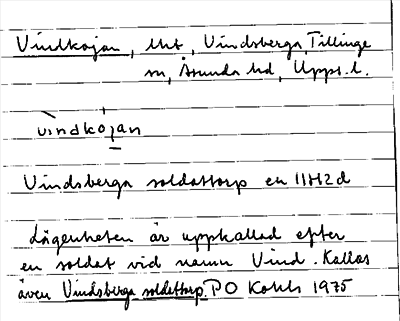 Vindkojan, lht, Vindsberga, Tillinge
sn, Åsunda hd, Upps. l.
vindkòjan
Vindsberga soldattorp ek 11H2d
Lägenheten är uppkallad efter
en soldat vid namn Vind. Kallas
även Vindsberga soldattorp. PO Kohls 1975